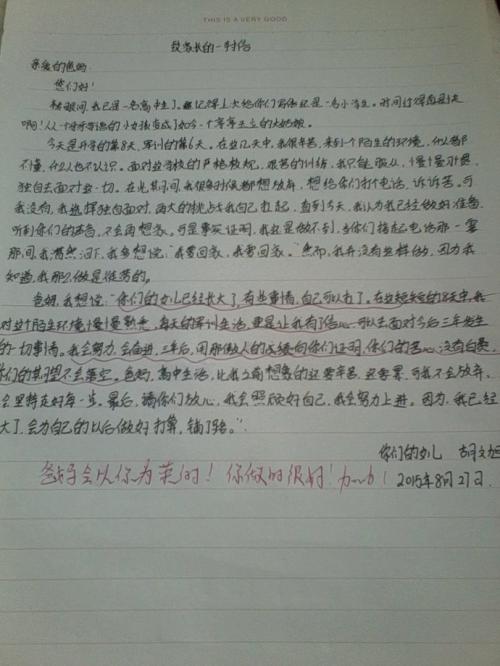 THIS IS A VERY GOOD
致家长的一封信
亲爱的爸妈:
您们好!
转眼间,我已是一名高中生了。记得上次给你们写信还是一名小学生。时间过得真是快
啊!从一个的小女孩变成了如今一个亭亭玉立的大姑娘。
今天是开学的第8天,军训的第6天。在这几天中,我很辛苦,来到一个陌生的环境,什么都
不懂,什么人也不认识。面对学校的严格校规,艰苦的训练,我只有服从,慢慢习惯,
独自去面对这一切。在此其间,我很多时候都想放弃,想给你们打个电话,诉诉苦。可
我没有,我选择独自面对,再大的挑战我自己扛起,直到今天,我认为我已经做好准备,
听到你们的声音,不会再想家。可是事实证明,我还是做不到,当你们接起电话那一霎
那间,我潸然泪下,我多想说:"我要回家,我要回家。"然而,我并没有这样做,因为我
知道,我那么做是徒劳的。
爸妈,我想说:"你们的女儿已经长大了,有些事情,自己可以扛了。在这短短的8天中,我
对这个陌生环境慢慢熟悉,每天的军训生活,更是让我有了信心可以去面对今后三年发生
的一切事情。我会努力,会奋进,三年后,用那傲人的成绩向你们证明,你们的苦心没有白费,
你们的期望不会落空。爸妈,高中生活,比我之前想象的还要辛苦,还要累,可我不会放弃,
会坚持走好每一步。最后,请你们放心,我会照顾好自己,我会努力上进。因为,我已经
大了,会为自己的以后做好打算,铺了路。"
你们的女儿
爸妈会以你为荣的!你做的很好!加油!
2015年8月27日.